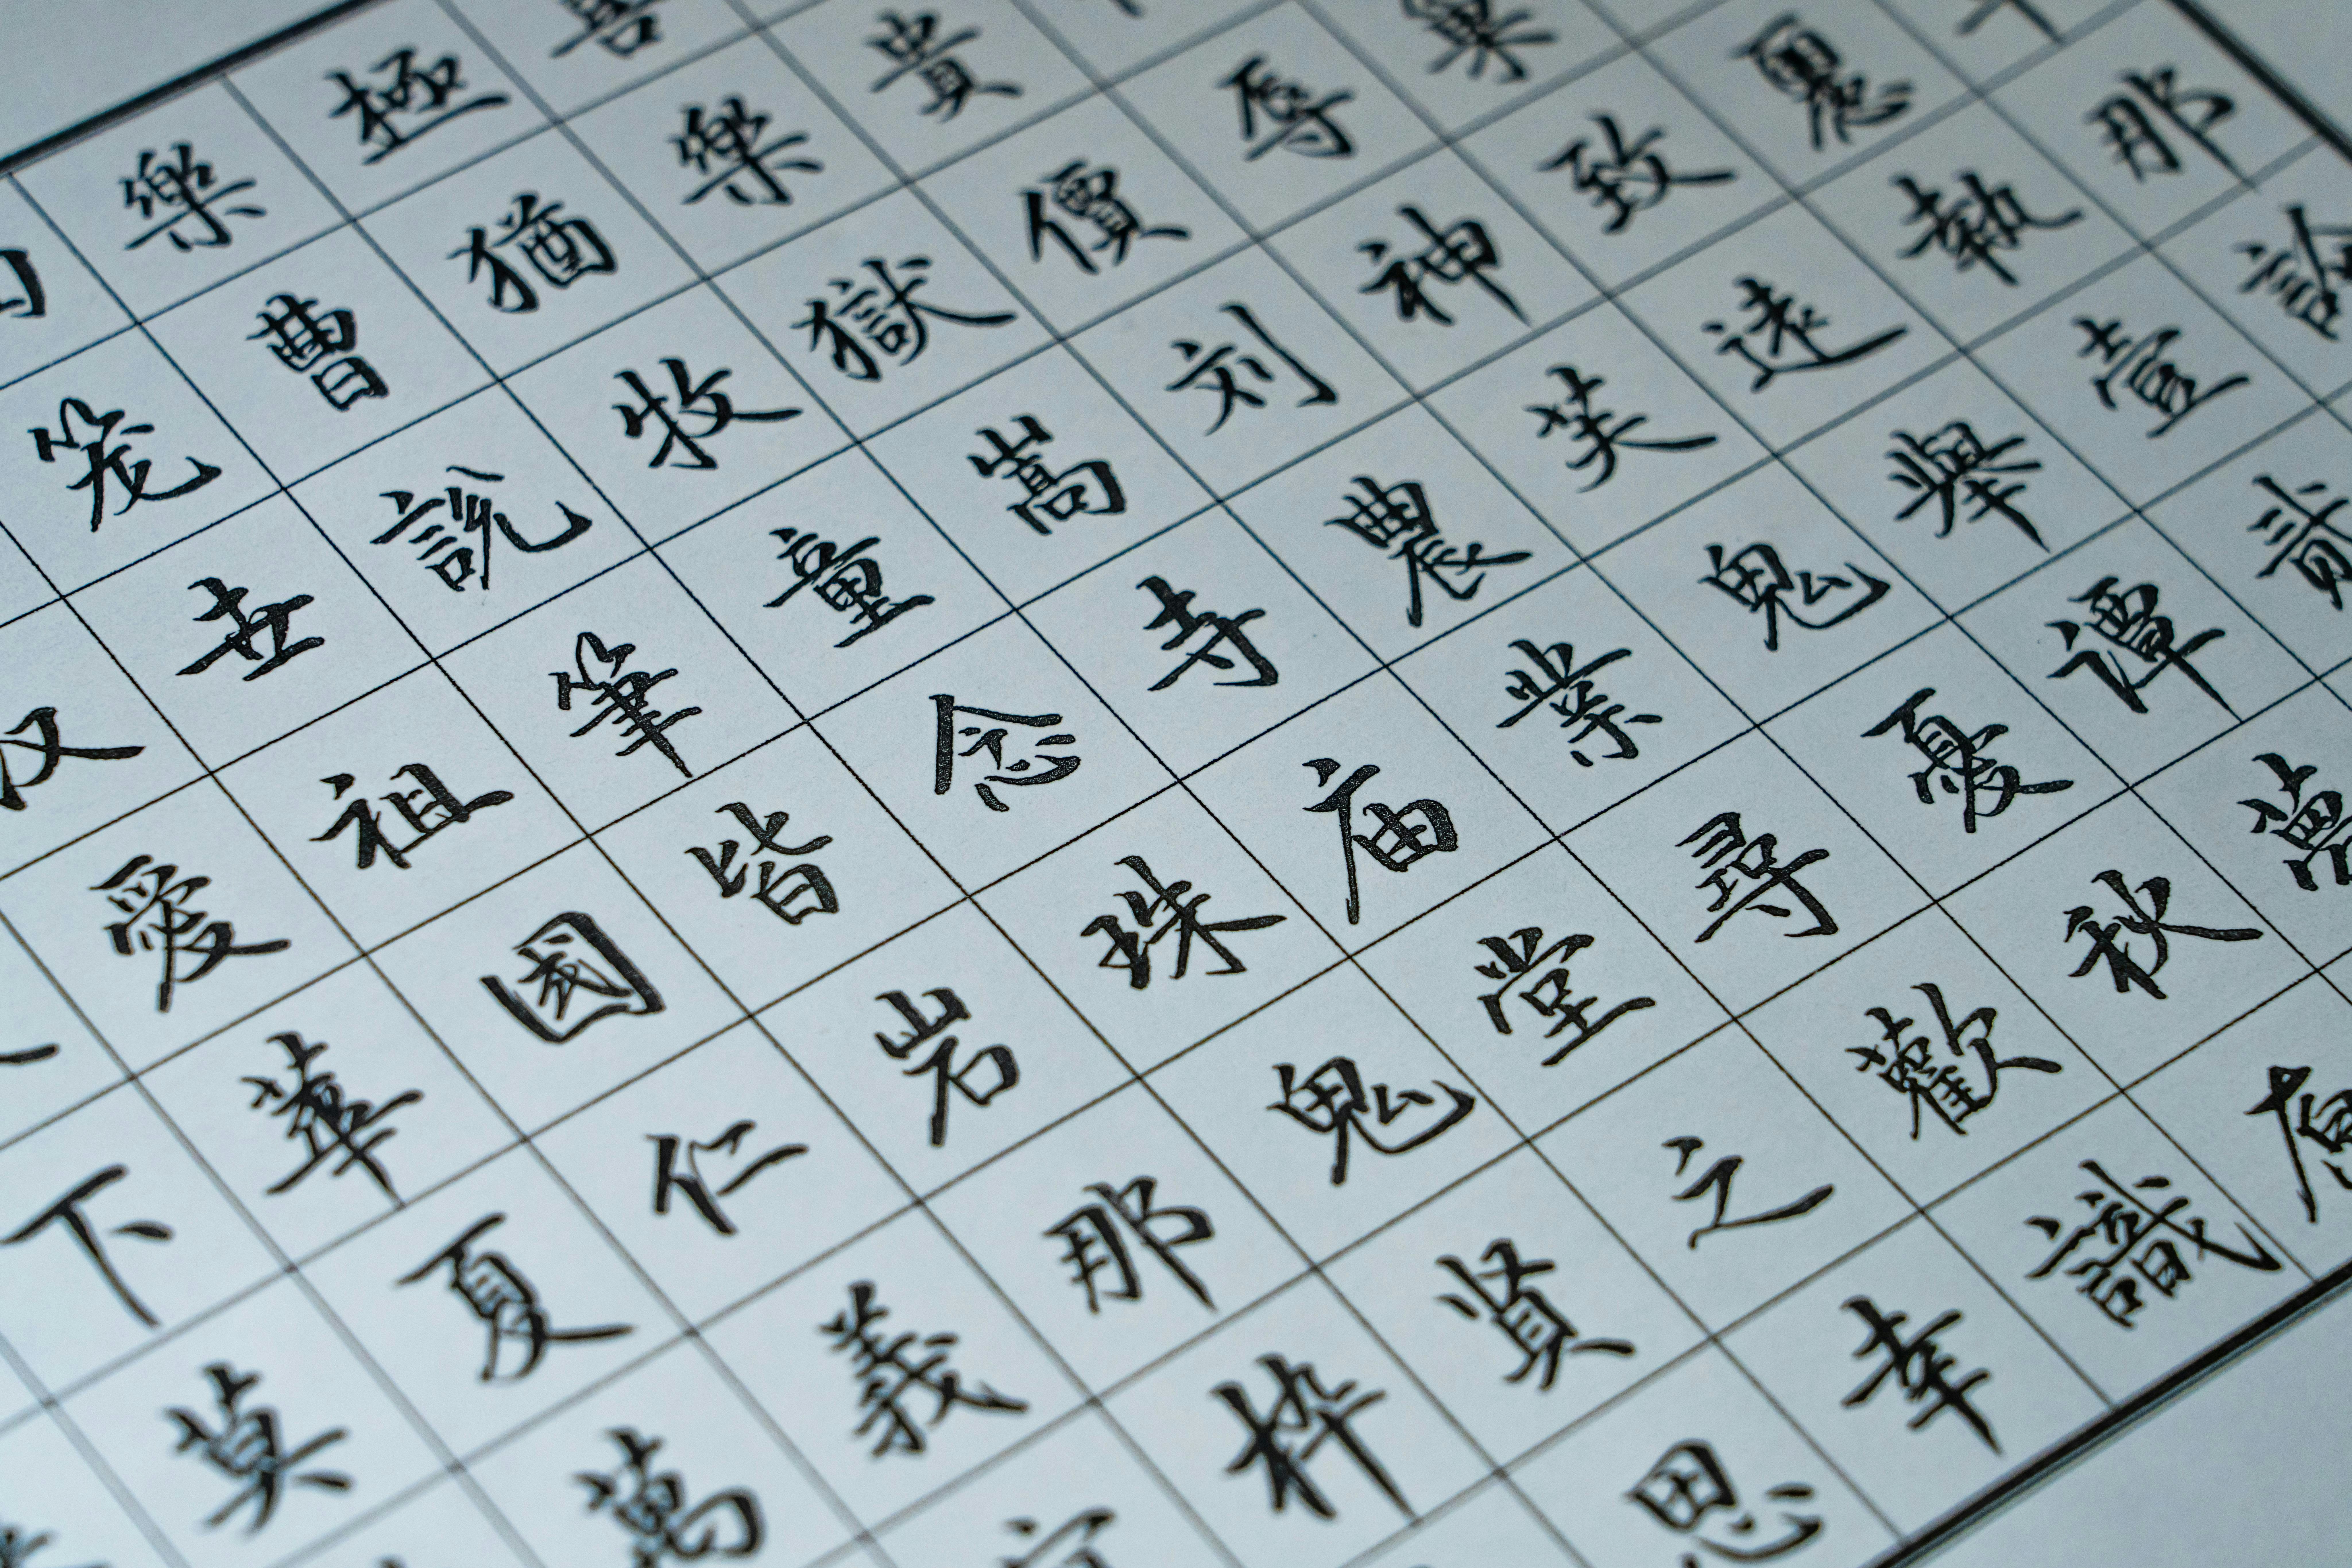 樂 極
笼 曹 猶 樂 貴
汉 世 說 牧 獄 價 辱
愛 祖 筆 童 嵩 刘 神 致
下 華 國 皆 念 寺 農 遠 執 那
莫 夏 仁 岩 珠 庙 業 鬼 舉 壹
萬 義 那 鬼 堂 尋 憂 譚 貳
枠 賢 之 歡 秋 萬
思 幸 識